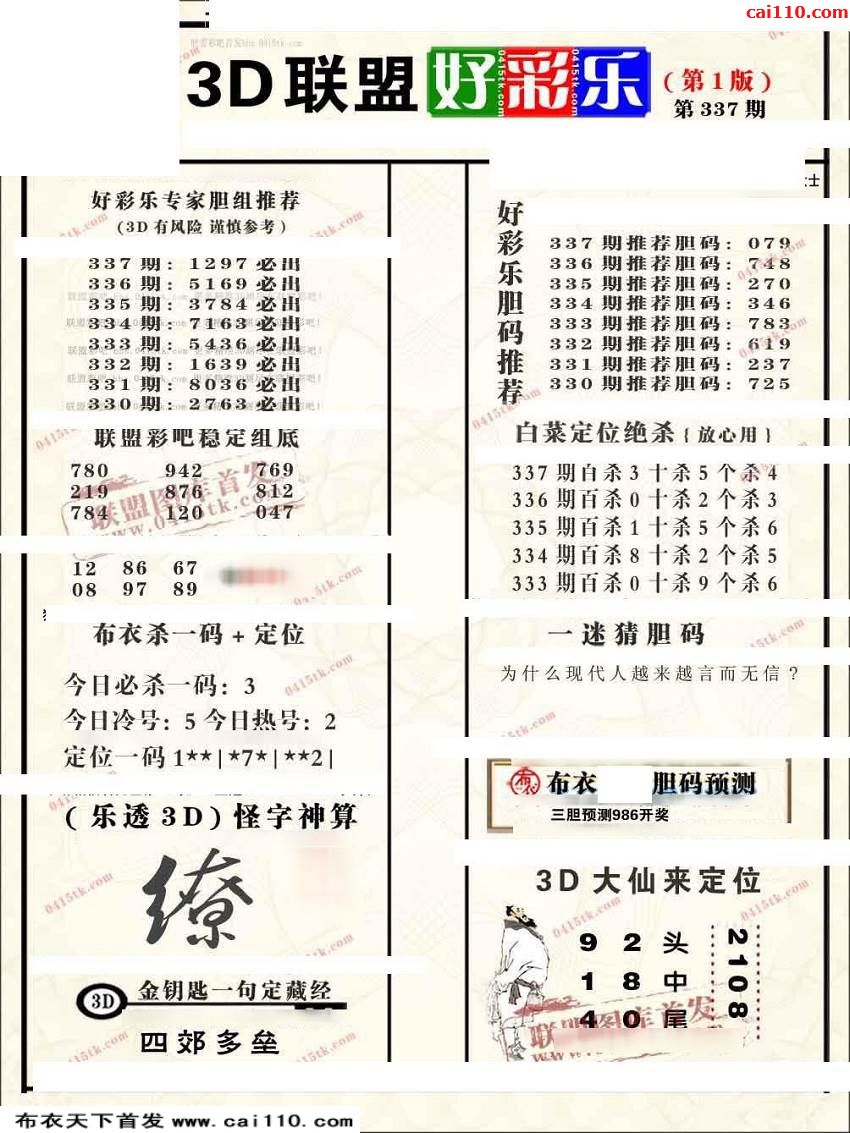 cai110.com
3D联盟 好彩乐 (第1版)
第337期
好彩乐专家胆组推荐
(3D有风险 谨慎参考)
337期: 1297必出
336期: 5169必出
335期: 3784必出
334期: 7163必出
333期: 5436必出
332期: 1639必出
331期: 8036必出
330期: 2763必出
联盟彩吧稳定组底
780 942 769
219 876 812
784 120 047
12 86 67
08 97 89
布衣杀一码+定位
今日必杀一码: 3
今日冷号: 5 今日热号: 2
定位一码 1**|*7*|**2|
(乐透3D)怪字神算
缭
3D 金钥匙一句定藏经
四郊多垒
好彩乐胆码推荐
337期推荐胆码: 079
336期推荐胆码: 748
335期推荐胆码: 270
334期推荐胆码: 346
333期推荐胆码: 783
332期推荐胆码: 619
331期推荐胆码: 237
330期推荐胆码: 725
白菜定位绝杀{放心用}
337期百杀3十杀5个杀4
336期百杀0十杀2个杀3
335期百杀1十杀5个杀6
334期百杀8十杀2个杀5
333期百杀0十杀9个杀6
一迷猜胆码
为什么现代人越来越言而无信?
布衣 胆码预测
三胆预测986开奖
3D大仙来定位
9 2 头
1 8 中
4 0 尾
2108
联盟图库首发
www.0415tk.com
0415tk.com
布衣天下首发 www.cai110.com